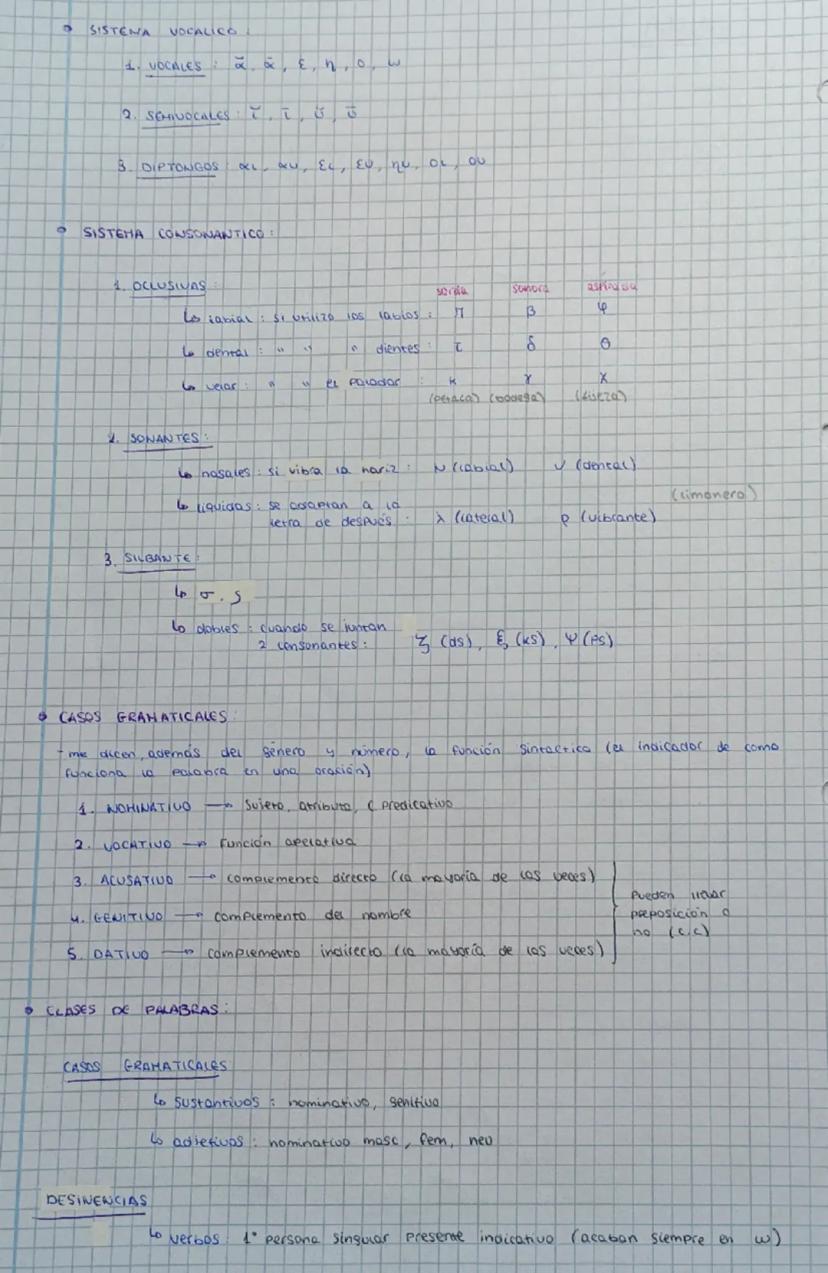 SISTEMA VOCALICO:
1. VOCALES: ᾰ, ᾱ, ε, η, ο, ω
2. SEMIVOCALES: ῐ, ῑ, ῠ, ῡ
3. DIPTONGOS: αι, αυ, ει, ευ, ηυ, οι, ου
SISTEMA CONSONANTICO:
1. OCLUSIVAS: sorda sonora aspirada
↳ labial: si utilizo los labios: π β φ
↳ dental: " " " dientes: τ δ θ
↳ velar: " " el paladar: κ γ χ
(petaca) (bodega)
2. SONANTES:
↳ nasales: si vibra la nariz: μ (labial) ν (dental)
(limonero)
↳ liquidas: se acoplan a la
letra de después: λ (lateral) ρ (vibrante)
3. SILBANTE:
↳ σ, ς
↳ dobles: cuando se juntan
2 consonantes: ζ (ds), ξ (ks), ψ (ps)
CASOS GRAMATICALES:
- me dicen, además del género y número, la función sintactica (el indicador de como
funciona la palabra en una oración)
1. NOMINATIVO → Sujeto, atributo, C predicativo
2. VOCATIVO → Función apelativa
3. ACUSATIVO → complemento directo (la mayoría de las veces)
4. GENITIVO → complemento del nombre
5. DATIVO → complemento indirecto (la mayoría de las veces)
Pueden llevar
preposición o
no (c.c)
CLASES DE PALABRAS:
CASOS GRAMATICALES
↳ sustantivos: nominativo, genitivo
↳ adjetivos: nominativo masc, fem, neu
DESINENCIAS
↳ verbos: 1ª persona singular presente indicativo (acaban siempre en ω)